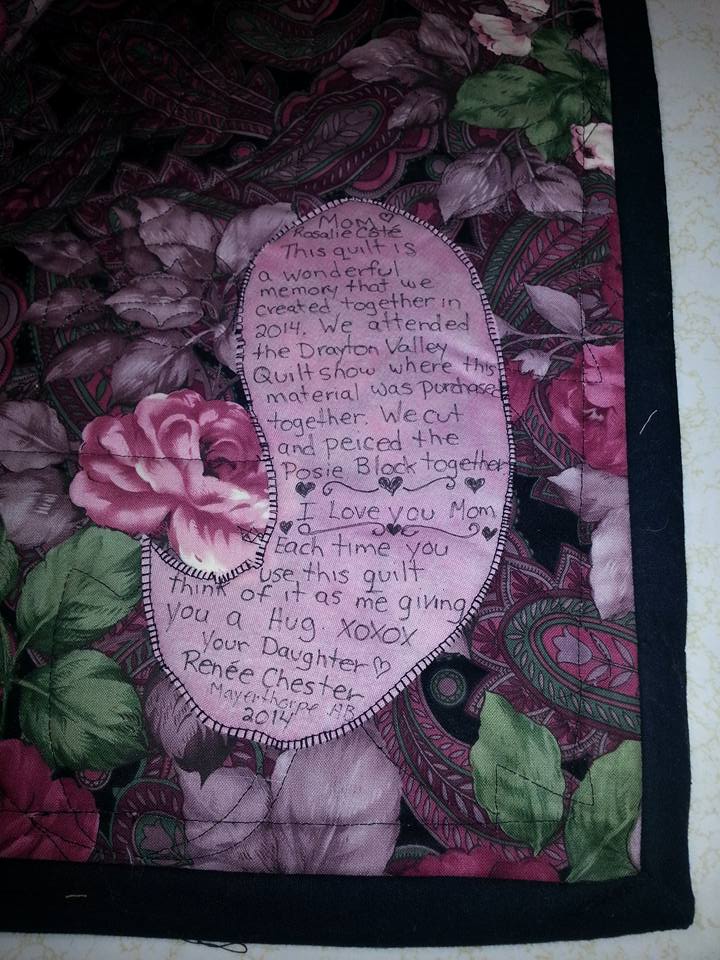 Mom♡
Rosalie Côté
This quilt is
a wonderful
memory that we
created together in
2014. We attended
the Drayton Valley
Quilt show where this
material was purchased
together. We cut
and peiced the
Posie Block together
I Love you Mom
Each time you
use this quilt
think of it as me giving
you a Hug. XOXOX
Your Daughter♡
Renée Chester
Mayerthorpe AB
2014